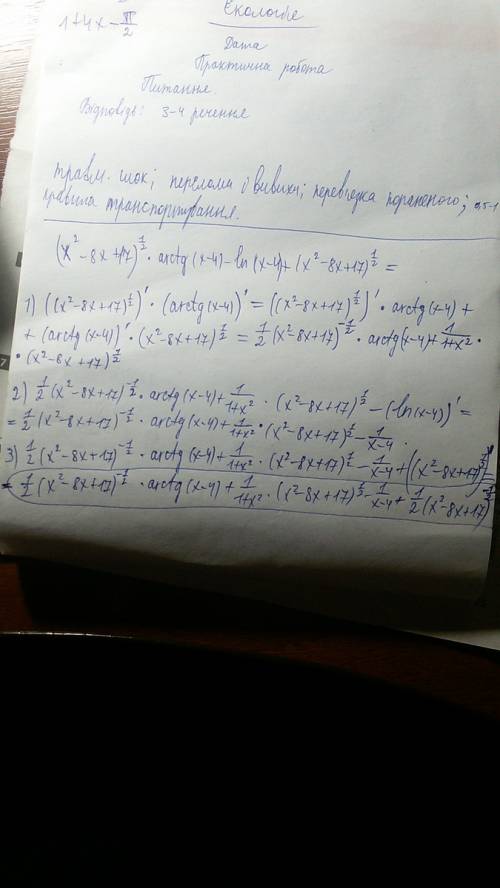 1+4x-π/2
Екологія
Дата
Практична робота
Питання.
Відповідь: 3-4 речення
травм. шок; переломи і вивихи; перев'язка пораненого;
правила транспортування.
(x²-8x+17)^½ · arctg(x-4)-ln(x-4)+(x²-8x+17)^½ =
1) ((x²-8x+17)^½)' · (arctg(x-4))' = ((x²-8x+17)^½)' · arctg(x-4)+
+ (arctg(x-4))' · (x²-8x+17)^½ = 1/2(x²-8x+17)^-½ · arctg(x-4)+1/1+x² ·
· (x²-8x+17)^½
2) 1/2(x²-8x+17)^-½ · arctg(x-4)+1/1+x² · (x²-8x+17)^½ -(ln(x-4))' =
= 1/2(x²-8x+17)^-½ · arctg(x-4)+1/1+x² · (x²-8x+17)^½ - 1/x-4.
3) 1/2(x²-8x+17)^-½ · arctg(x-4)+1/1+x² · (x²-8x+17)^½ - 1/x-4 + ((x²-8x+17)^½)' =
= 1/2(x²-8x+17)^-½ · arctg(x-4)+1/1+x² · (x²-8x+17)^½ - 1/x-4 + 1/2(x²-8x+17)^-½